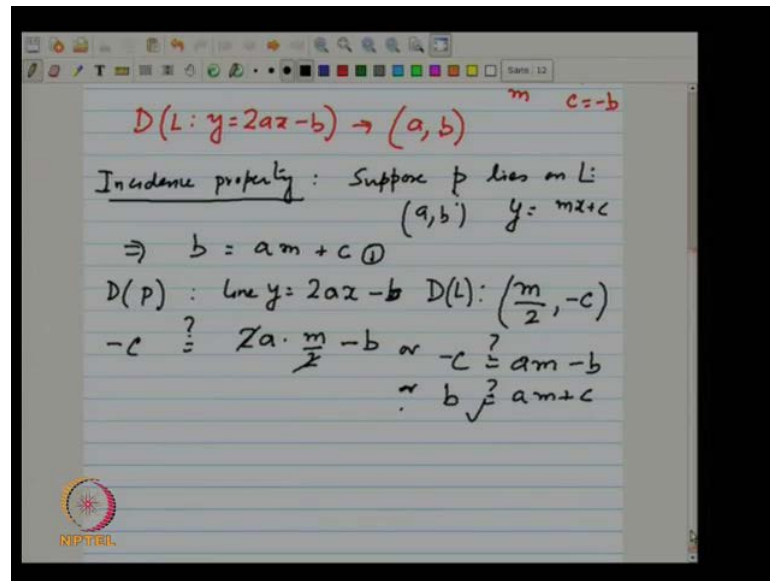 Sans 12
m c=-b
D(L: y=2ax-b) → (a, b)
Incidence property : Suppose p lies on L:
(a, b) y= mx+c
⇒ b = am + c ①
D(p) : Line y= 2ax-b D(L): (m/2, -c)
-c ?= 2a. m/2 - b or -c ?= am - b
or b ?= am+c ✓
NPTEL